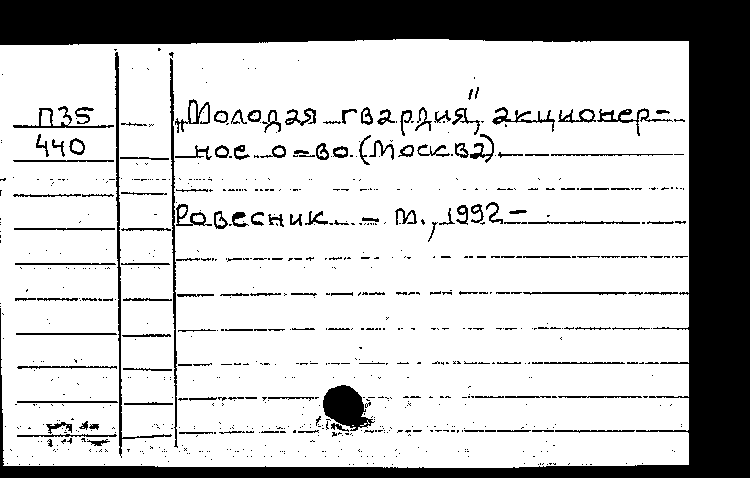 П35
440
„Молодая гвардия", акционер-
ное о-во (Москва).
Ровесник. – М., 1992 –